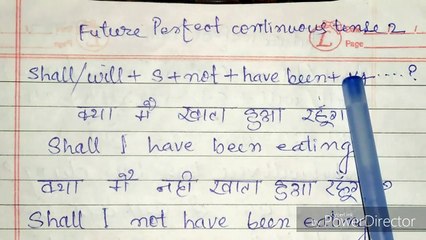 Future Perfect continuous tense 2
Page
Shall/will + S + not + have been + ....?
क्या मैं खाता हुआ रहूंगा
Shall I have been eating
क्या मैं नही खाता हुआ रहूंगा ?
Shall I not have been eating
PowerDirector